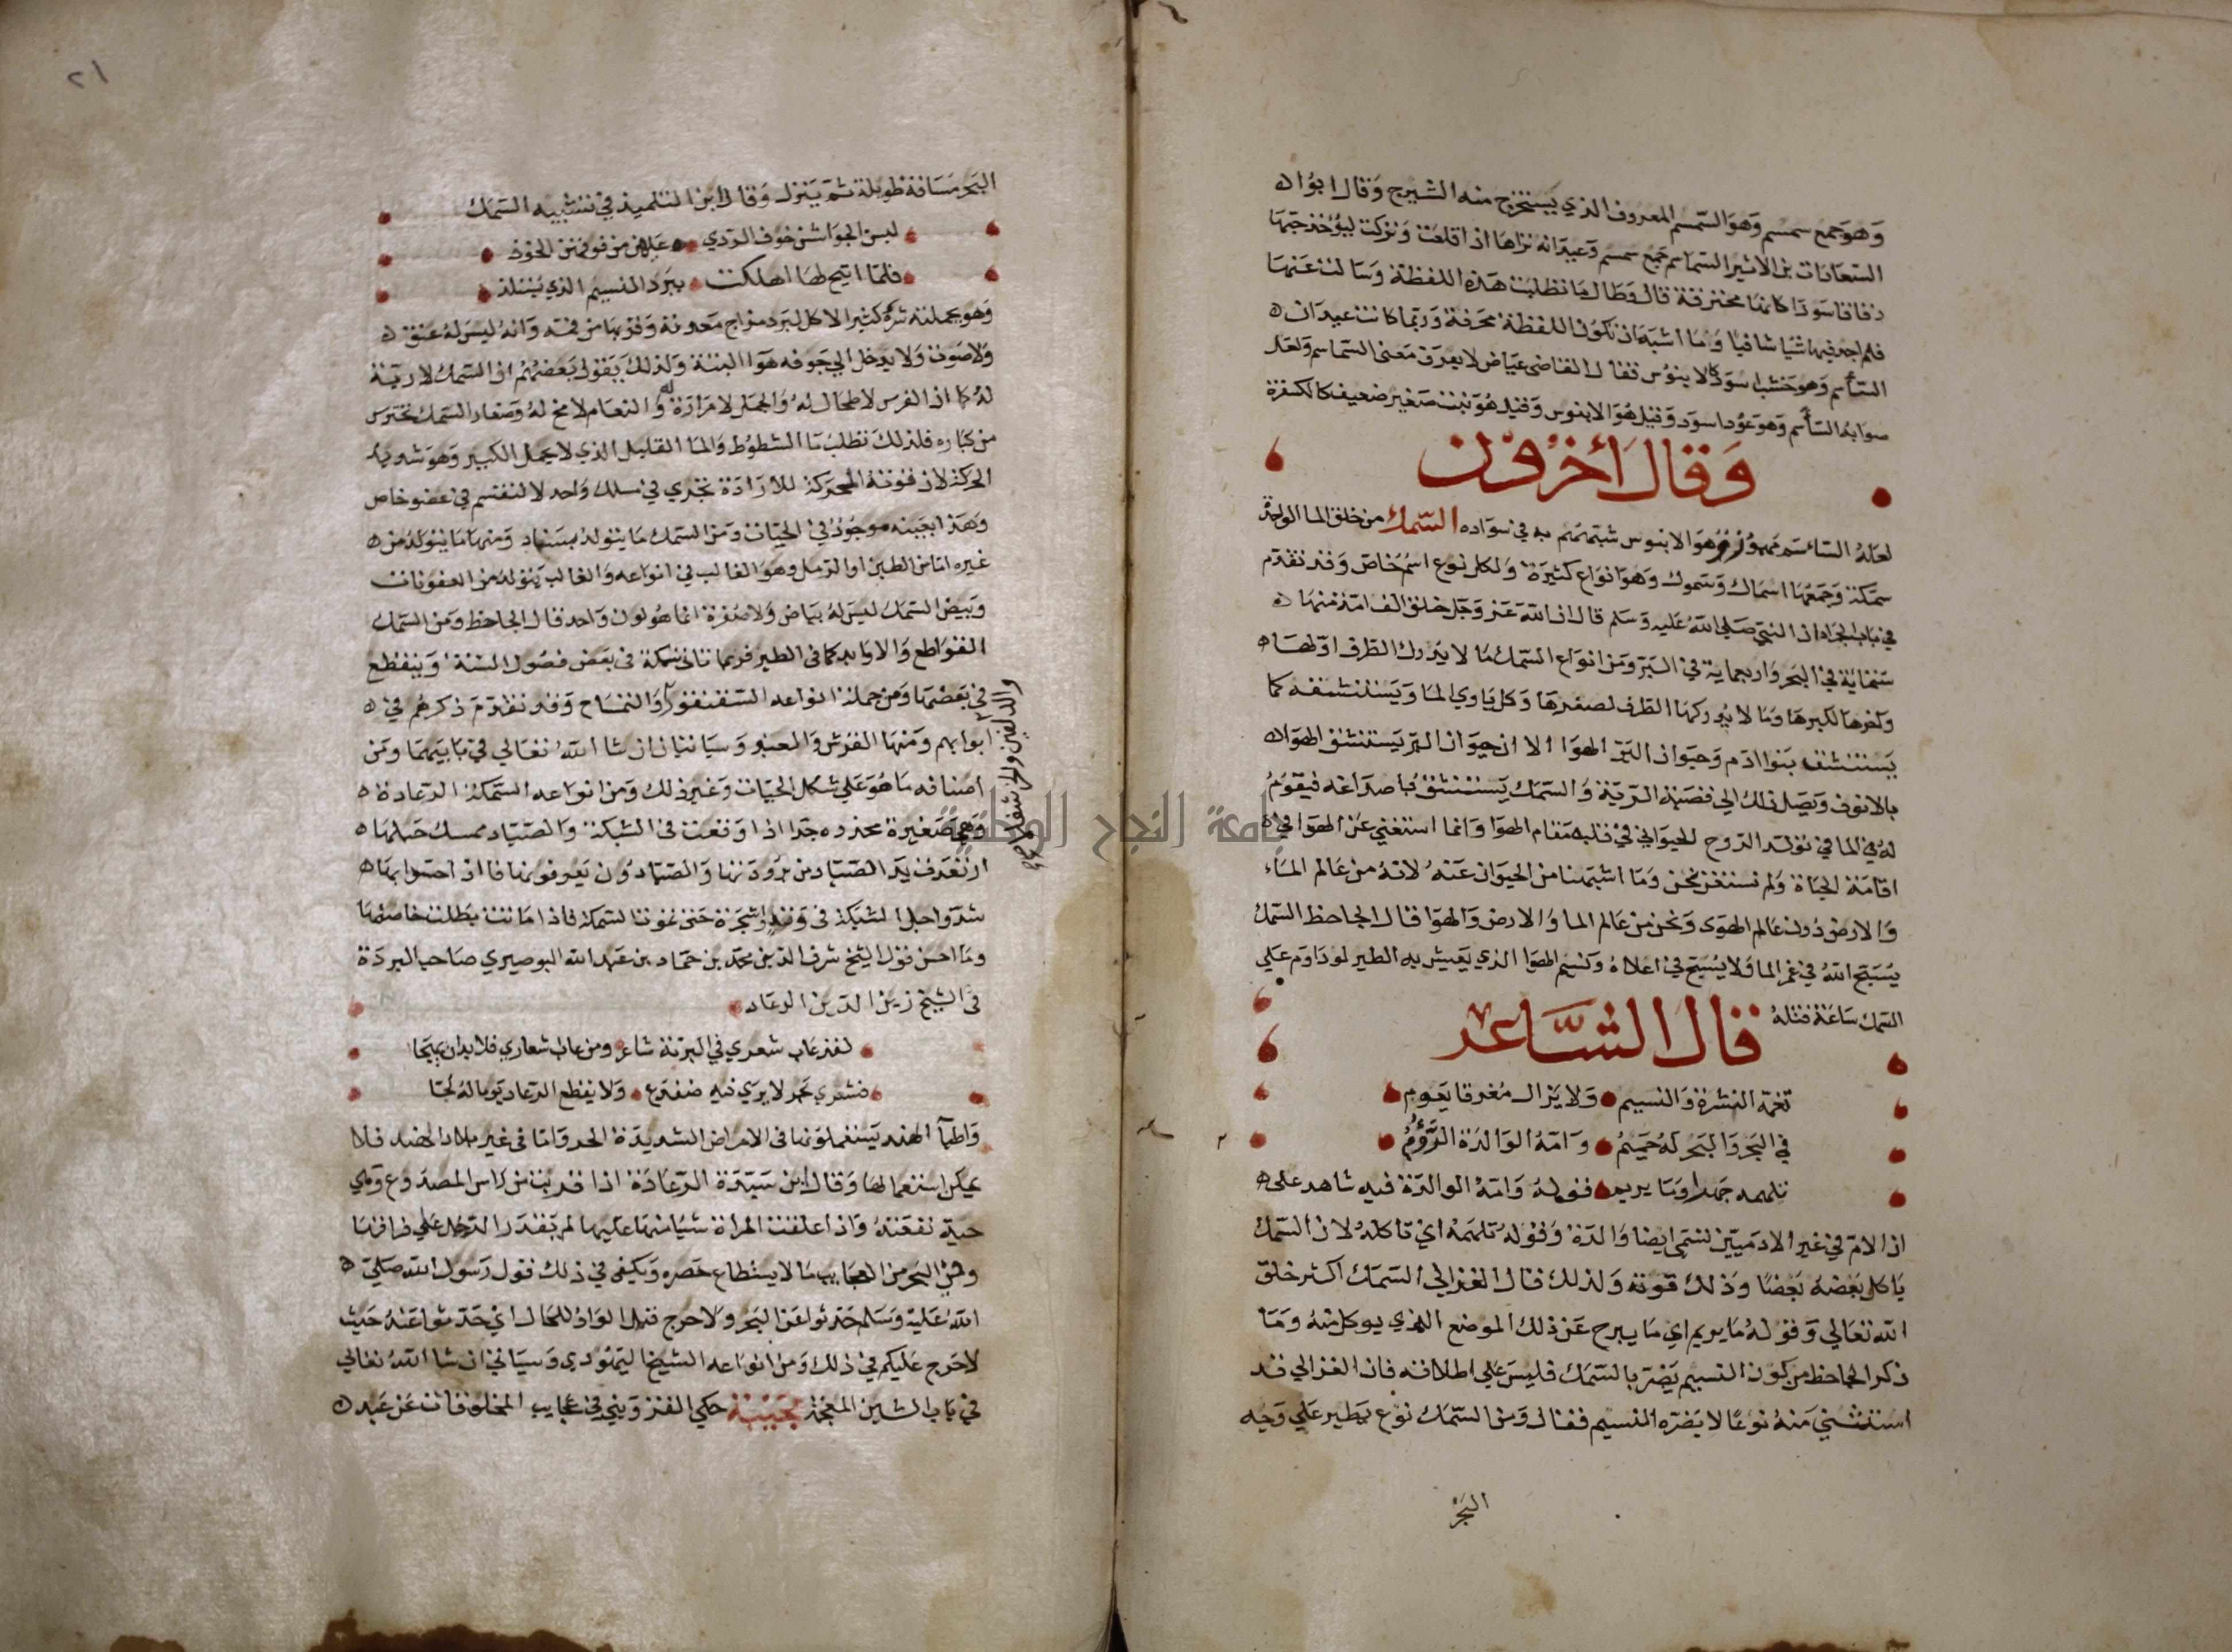 وهو جمع سمسم وهو السمسم المعروف الذي يستخرج منه الشيرج وقال ابو ال
السعادات بن الاثير السماسم جمع سمسم وعيدانه تراها اذا قلعت وتركت ليؤخذ حبها
دقاقا سودا كانها محترقة قال وطال ما تطلبت هذه اللفظة وسالت عنها
فلم اجد فيها شيا شافيا وما اشبه ان تكون اللفظة محرفة وربما كانت عيدان
الساسم وهو خشب اسود كالابنوس فقال القاضي عياض لا يعرف معنى السماسم ولعل
صوابه الساسم وهو عود اسود وقيل هو الابنوس وقيل هو نبت صغير ضعيف كالكسفرة
وقال اخرون
لعله الساسم مهموز وهو الابنوس شبههم به في سواده السمك من خلق الما الواحدة
سمكة وجمعها اسماك وسموك وهو انواع كثيرة ولكل نوع اسم خاص وقد تقدم
في باب الجراد ان النبي صلى الله عليه وسلم قال ان الله عز وجل خلق الف امة منها
ستماية في البحر واربعماية في البر ومن انواع السمك ما لا يدرك الطرف اولها
واخرها لكبرها وما لا يدركها الطرف لصغرها وكل ياوي الما ويستنشقه كما
يستنشق بنو ادم وحيوان البر الهوا الا ان حيوان البر يستنشق الهوا
بالانوف ويصل ذلك الى قصبة الرية والسمك يستنشق باصداغه فيقوم
له في الما في تولد الروح الحيواني في قلبه مقام الهوا وانما استغني عن الهوا في
اقامة الحياة ولم نستغن نحن وما اشبهنا من الحيوان عنه لانه من عالم الماء
والارض دون عالم الهوى ونحن من عالم الما والارض والهوا قال الجاحظ السمك
يسبح الله في غمر الما ولا يسبح في اعلاه ونسيم الهوا الذي يعيش به الطير لو داوم على
السمك ساعة قتله قال الشاعر
تغمه النشرة والنسيم ولا يزال مغرقا يعوم
في البحر والبحر له حميم وامه الوالدة الرؤوم
تلهمه جهرا وما يريم فقوله وامه الوالدة فيه شاهد على
ان الام في غير الادميين تسمى ايضا والدة وقوله تلهمه اي تاكله لان السمك
ياكل بعضه بعضا وذلك قوته ولذلك قال الغزالي السمك اكثر خلق
الله تعالى وقوله ما يريم اي ما يبرح عن ذلك الموضع الذي يوكل منه وما
ذكر الجاحظ من كون النسيم يضر بالسمك فليس على اطلاقه فان الغزالي قد
استثنى منه نوعا لا يضره النسيم فقال ومن السمك نوع يطير على وجه
البحر
٢١
البحر مسافة طويلة ثم ينزل وقال ابن التلميذ في تشبيه السمك
لبسن الجواشن خوف الردي عليهن من فوقهن الخوذ
فلما اتيح لها اهلكت ببرد النسيم الذي يستلذ
وهو بجملته شره كثير الاكل لبرد مزاج معدته وقربها من فمه وانه ليس له عنق
ولا صوت ولا يدخل الى جوفه هوا البتة ولذلك يقول بعضهم ان السمك لا رية
له كما ان الفرس لا طحال له والجمل لا مرارة له والنعام لا مخ له وصغار السمك تحترس
من كباره فلذلك تطلب ما الشطوط والما القليل الذي لا يحمل الكبير وهو شديد
الحركة لان قوته المحركة للارادة تجري في مسلك واحد لا تنقسم في عضو خاص
وهذا بجبنه موجود في الحيات ومن السمك ما يتولد بسفاد ومنها ما يتولد من
غيره اما من الطين او الرمل وهو الغالب في انواعه والغالب يتولد من العفونات
وبيض السمك ليس له بياض ولا صفرة انما هو لون واحد قال الجاحظ ومن السمك
القواطع والاوابد كما في الطير فربما تاتي سمكة في بعض فصول السنة وينقطع
في بعضها ومن جملة انواعه السقنقور والتمساح وقد تقدم ذكرهم في
والدلفين والخرشقلا
ابوابهم ومنها القرش والعنبر وسياتيان ان شا الله تعالى في بابيهما ومن
اصنافه ما هو على شكل الحيات وغير ذلك ومن انواعه السمكة الرعادة
وهي صغيرة مخدره جدا اذا وقعت في الشبكة والصياد ممسك حبلها
ارتعدت يد الصياد من برودتها والصيادون يعرفونها فاذا احسوا بها
شدوا حبل الشبكة في وتد او شجرة حتى تموت السمكة فاذا ماتت بطلت خاصيتها
وما احسن قول الشيخ شرف الدين محمد بن حماد بن عبد الله البوصيري صاحب البردة
في الشيخ زين الدين الرعاد
لقد عاب شعري في البرية شاعر ومن عاب اشعاري فلا بد ان يهجا
فشعري بحر لا يرى فيه ضفدع ولا يقطع الرعاد يوما له لجا
واطبآ الهند يستعملونها في الامراض الشديدة الحر واما في غير بلاد الهند فلا
يمكن استعمالها وقال ابن سيدة الرعادة اذا قربت من راس المصدوع وهي
حية نفعته واذا علقت المراة شيا منها عليها لم يقدر الرجل على فراقها
وفي البحر من العجايب ما لا يستطاع حصره ويكفي في ذلك قول رسول الله صلى
الله عليه وسلم حدثوا عن البحر ولا حرج قيل الواو للحال اي حدثوا عنه حيث
لا حرج عليكم في ذلك ومن انواعه الشيخ اليهودي وسياتي ان شا الله تعالى
في باب الشين المعجمة عجيبة حكى القزويني في عجايب المخلوقات عن عبد
جامعة النجاح الوطنية